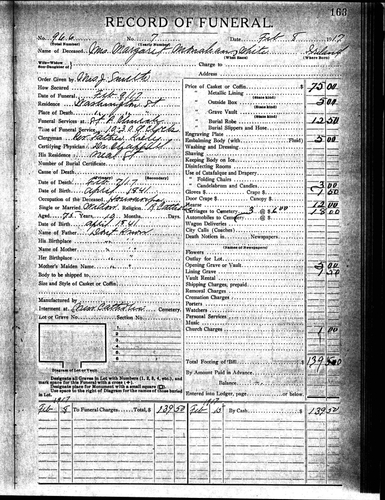 163
RECORD OF FUNERAL.
No. 966 No. 7 Date Feb 8 1917
(Total Number) (Yearly Number)
Name of Deceased, Mrs Margaret White Ireland
(What Race) (Where Born)
Charge to
Address
Order Given by Mrs J. Smith
How Secured
Date of Funeral Feb 9/17
Residence Washington St
Place of Death
Funeral Services at
Time of Funeral Service 10:30 O'Clock
Clergyman Rev. Father
Certifying Physician Dr Chappell
His Residence Neal St
Number of Burial Certificate
Cause of Death
Date of Death Feb 7/17
Date of Birth April 1841
Occupation of the Deceased Housework
Single or Married Widow Religion R. Catholic
Aged 75 Years 10 Months Days
Date of Birth April 1841
Name of Father Don't Know
His Birthplace "
Name of Mother "
Her Birthplace "
Mother's Maiden Name "
Body to be shipped to
Size and Style of Casket or Coffin
Manufactured by
Interment at New Catholic Cemetery
Lot or Grave No. Section No.
Diagram of Lot or Vault
Designate all Graves in Lot with Numbers (1, 2, 3, 4, etc.), and
mark space for this Funeral with a cross (+).
Designate place for Monument with a small square
Use space to right of Diagram for the names of those buried
in Lot.
Price of Casket or Coffin $ 75 00
Metallic Lining
(State kind)
Outside Box 5 00
(State kind)
Grave Vault
(State kind)
Burial Robe 12 50
Burial Slippers and Hose
Engraving Plate
Embalming Body (with Fluid) 5 00
Washing and Dressing
Shaving
Keeping Body on Ice
Disinfecting Rooms
Use of Catafalque and Drapery
" Folding Chairs
" Candelabrum and Candles 3 00
Gloves $ Crape $ 1 50
Door Crape Canopy $
Hearse 12 00
Carriages to Cemetery 3 @ $6 00 18 00
Automobiles to Cemetery @
Wagon Deliveries
City Calls $ Coaches $
Death Notices in Newspapers
(Names of Newspapers)
Flowers
Outlay for Lot
Opening Grave or Vault
Lining Grave
Vault Rental
Shipping Charges, prepaid
Removal Charges
Cremation Charges
Porters
Watchers
Personal Services
Music
Church Charges 1 00
Total Footing of Bill $ 139 50
By Amount Paid in Advance
Balance
Entered into Ledger, page or below.
1917
Feb 8 To Funeral Charges Total, $ 139 50
1917
Feb By Cash $ 139 50